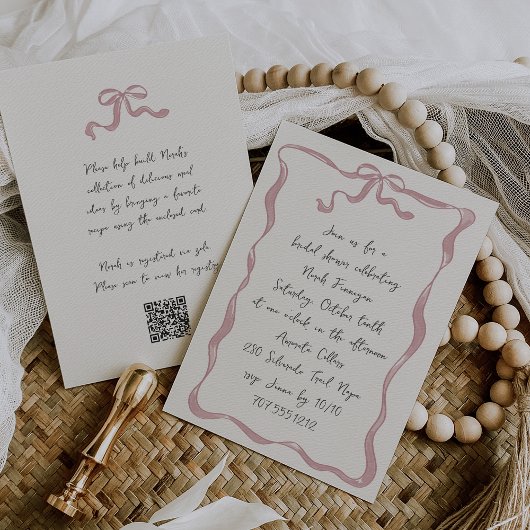 Please help build Norah's
collection of delicious meal
ideas by bringing a favorite
recipe using the enclosed card.
Norah is registered via zola
Please scan to view her registry
Join us for a
bridal shower celebrating
Norah Finnegan
Saturday, October tenth
at one o'clock in the afternoon
Amorata Cellars
280 Silverado Trail, Napa
rsvp Jenna by 10/10
707.555.1212